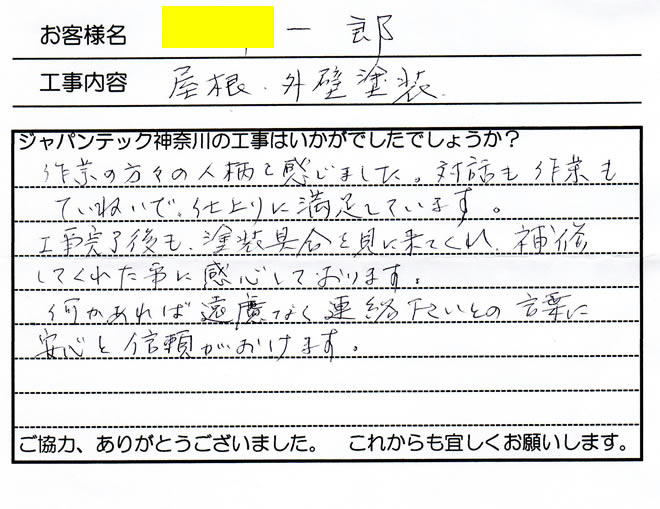 お客様名 一郎
工事内容 屋根・外壁塗装
ジャパンテック神奈川の工事はいかがでしたでしょうか？
作業の方々の人柄を感じました。対話も作業も
ていねいで、仕上りに満足しています。
工事完了後も、塗装具合を見に来てくれ、補修
してくれた事に感心しております。
何かあれば遠慮なく連絡下さいとの言葉に
安心と信頼がおけます。
ご協力、ありがとうございました。 これからも宜しくお願いします。